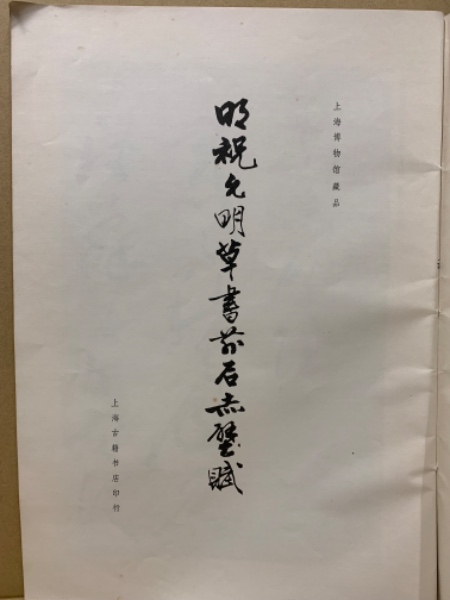 上海博物馆藏品
明祝允明草書前后赤壁賦
上海古籍书店印行